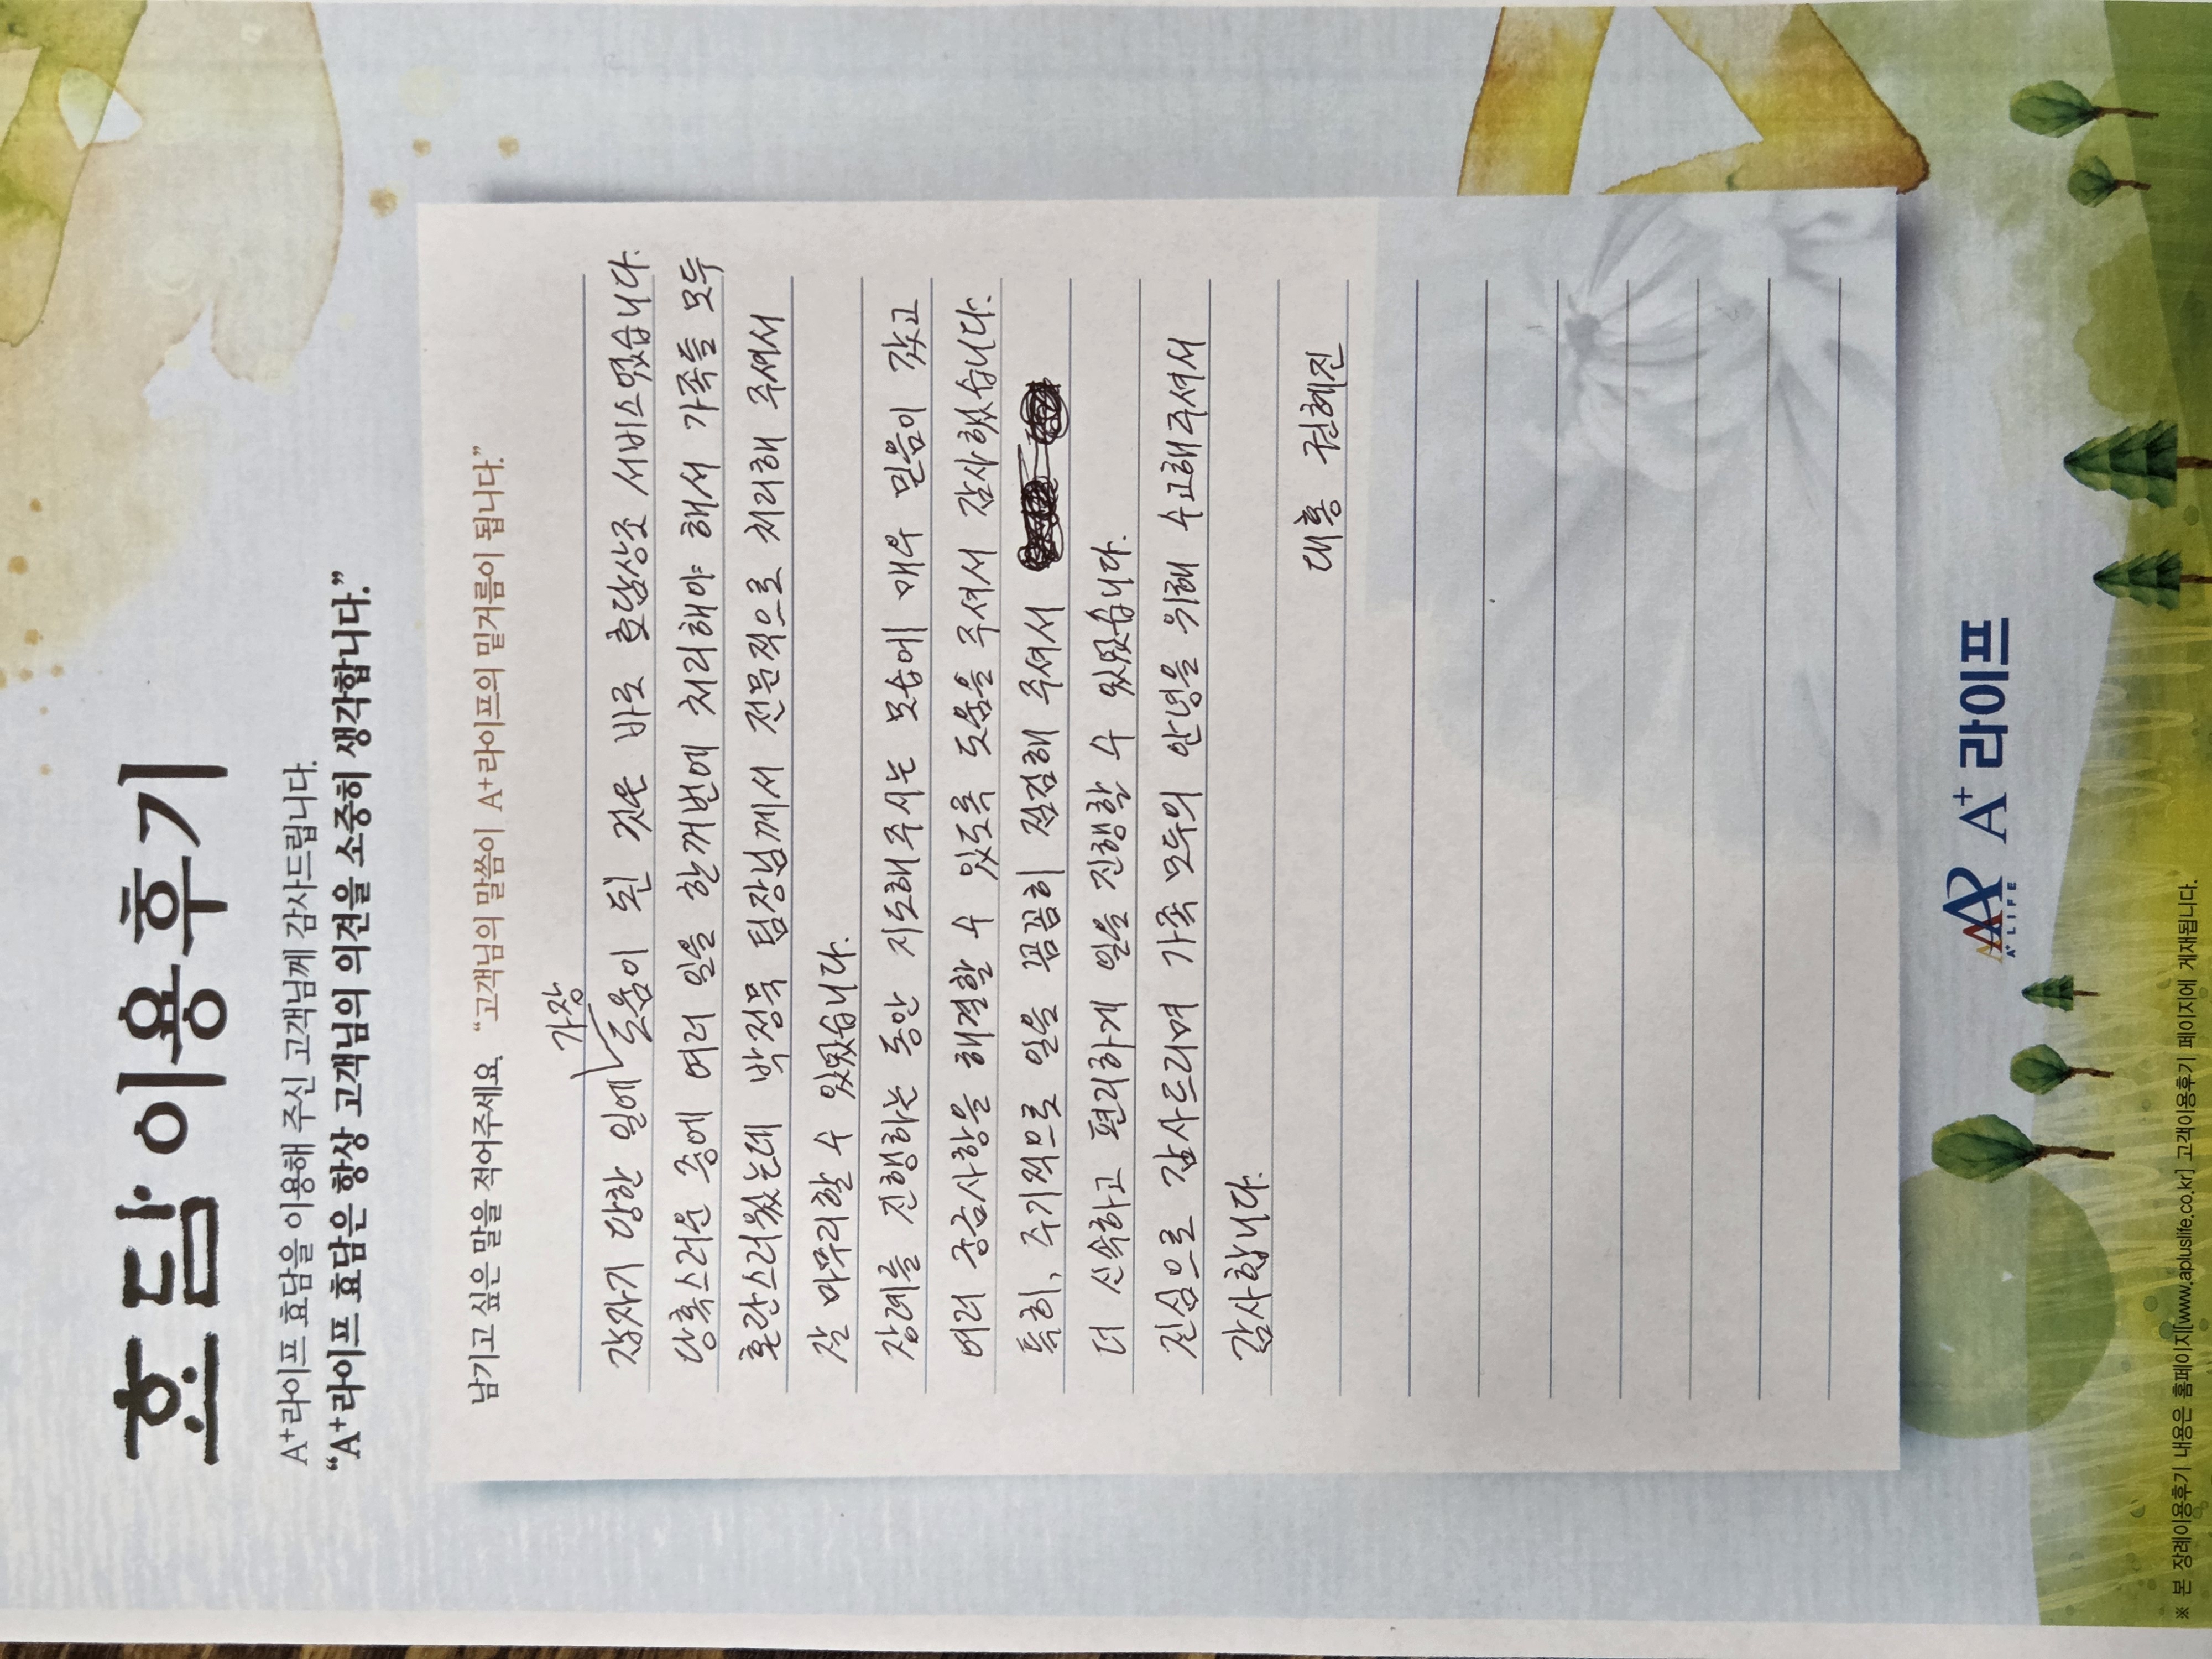 효담 이용후기
A⁺라이프 효담을 이용해 주신 고객님께 감사드립니다.
“A⁺라이프 효담은 항상 고객님의 의견을 소중히 생각합니다.”
남기고 싶은 말을 적어주세요. “고객님의 말씀이 A⁺라이프의 밑거름이 됩니다.”
가장
갑자기 당한 일에 도움이 된 것은 바로 효담상조 서비스였습니다.
당혹스러운 중에 여러 일을 한꺼번에 처리해야 해서 가족들 모두
혼란스러웠는데 박정묵 팀장님께서 전문적으로 처리해 주셔서
잘 마무리할 수 있었습니다.
장례를 진행하는 동안 지도해주시는 모습에 매우 믿음이 갔고
여러 궁금사항을 해결할 수 있도록 도움을 주셔서 감사했습니다.
특히, 주기적으로 일을 꼼꼼히 점검해 주셔서
더 신속하고 편리하게 일을 진행할 수 있었습니다.
진심으로 감사드리며 가족 모두의 안녕을 위해 수고해주셔서
감사합니다.
대홍 권혜진
A⁺ LIFE A⁺ 라이프
※ 본 장례이용후기 내용은 홈페이지[www.apluslife.co.kr] 고객이용후기 페이지에 게재됩니다.